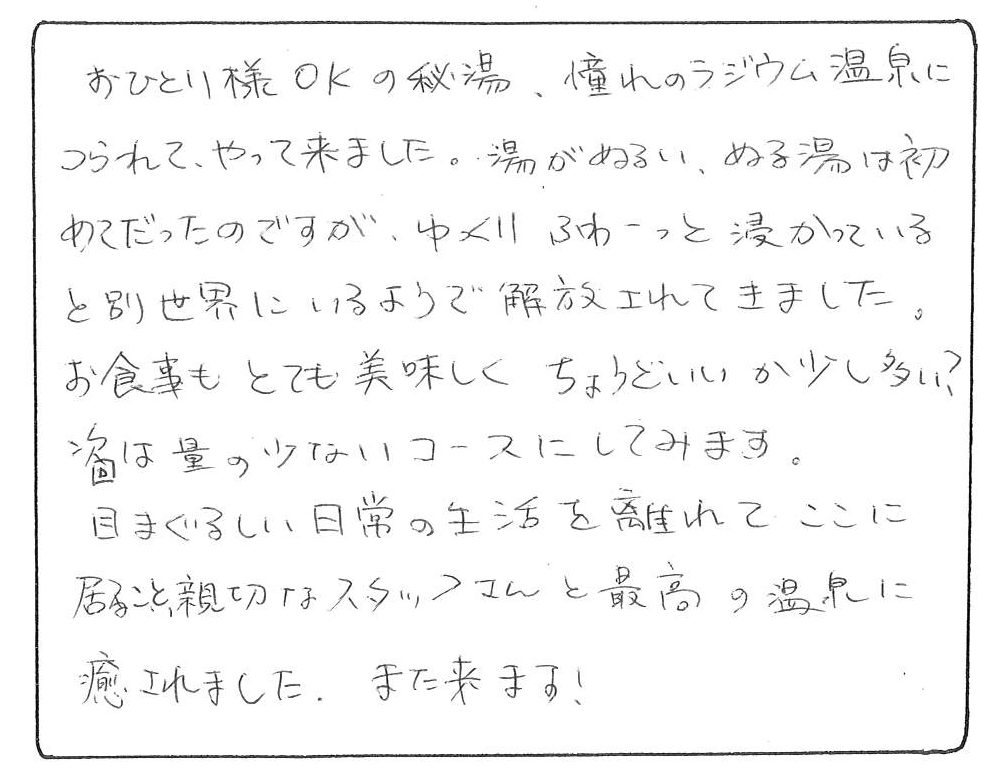 おひとり様OKの秘湯、憧れのラジウム温泉に
つられて、やって来ました。湯がぬるい、ぬる湯は初
めてだったのですが、ゆっくりふわーっと浸かっている
と別世界にいるようで解放されてきました。
お食事もとても美味しくちょうどいいか少し多い?
次回は量の少ないコースにしてみます。
目まぐるしい日常の生活を離れてここに
居ること、親切なスタッフさんと最高の温泉に
癒されました. また来ます!